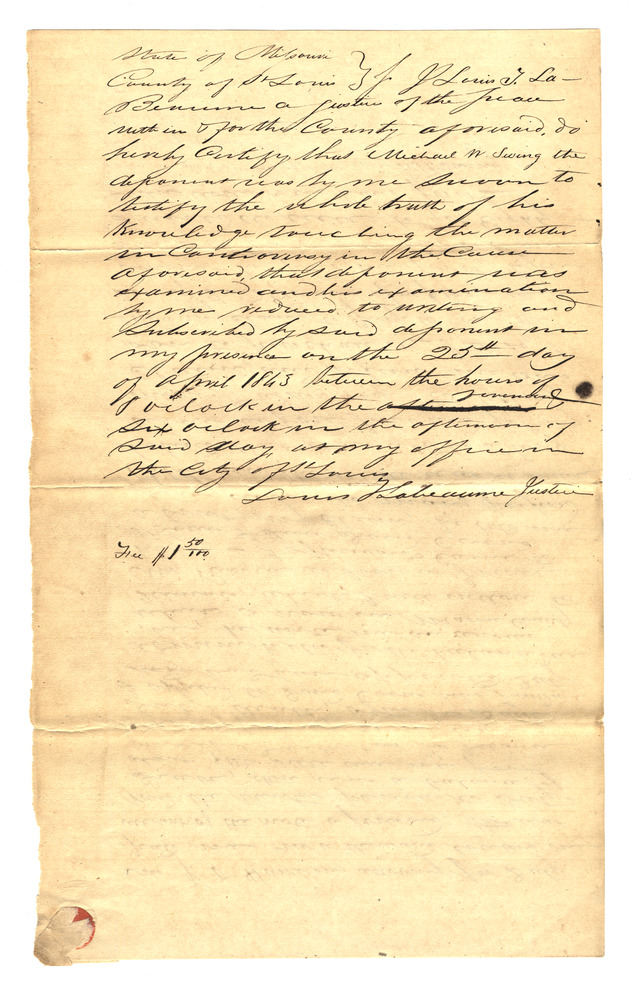 State of Missouri
County of St Louis } ss I Louis T. La-
Beaume a Justice of the peace
within & for the County aforesaid, do
hereby Certify that Michael W. Swing the
deponent was by me sworn to
testify the whole truth of his
Knowledge touching the matter
in Controversy in the Cause
aforesaid, that deponent was
examined and his examination
by me reduced to writing and
subscribed by said deponent in
my presence on the 25th day
of April 1843 between the hours of
8 oclock in the forenoon &
six oclock in the afternoon of
said day, at my office in
the City of St Louis
Louis T Labeaume Justice
Fee $1 50/100